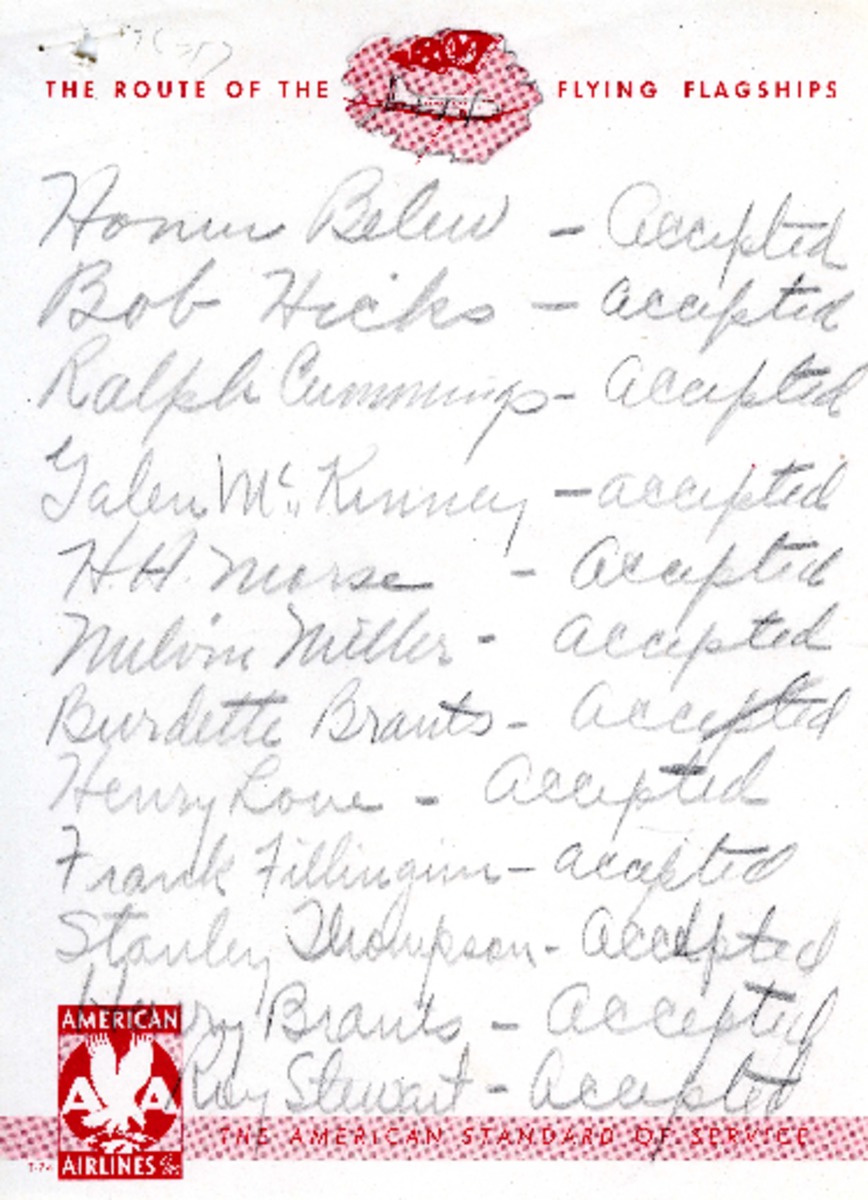 THE ROUTE OF THE FLYING FLAGSHIPS
Homer Belew - Accepted
Bob Hicks - accepted
Ralph Cummings - Accepted
Galen Mc. Kinney - accepted
H.H. Morse - Accepted
Melvin Miller - accepted
Burdette Brants - Accepted
Henry Love - Accepted
Frank Fillingim - accepted
Stanley Thompson - Accepted
Harry Brants - Accepted
Roy Stewart - Accepted
AMERICAN
A A
AIRLINES
THE AMERICAN STANDARD OF SERVICE